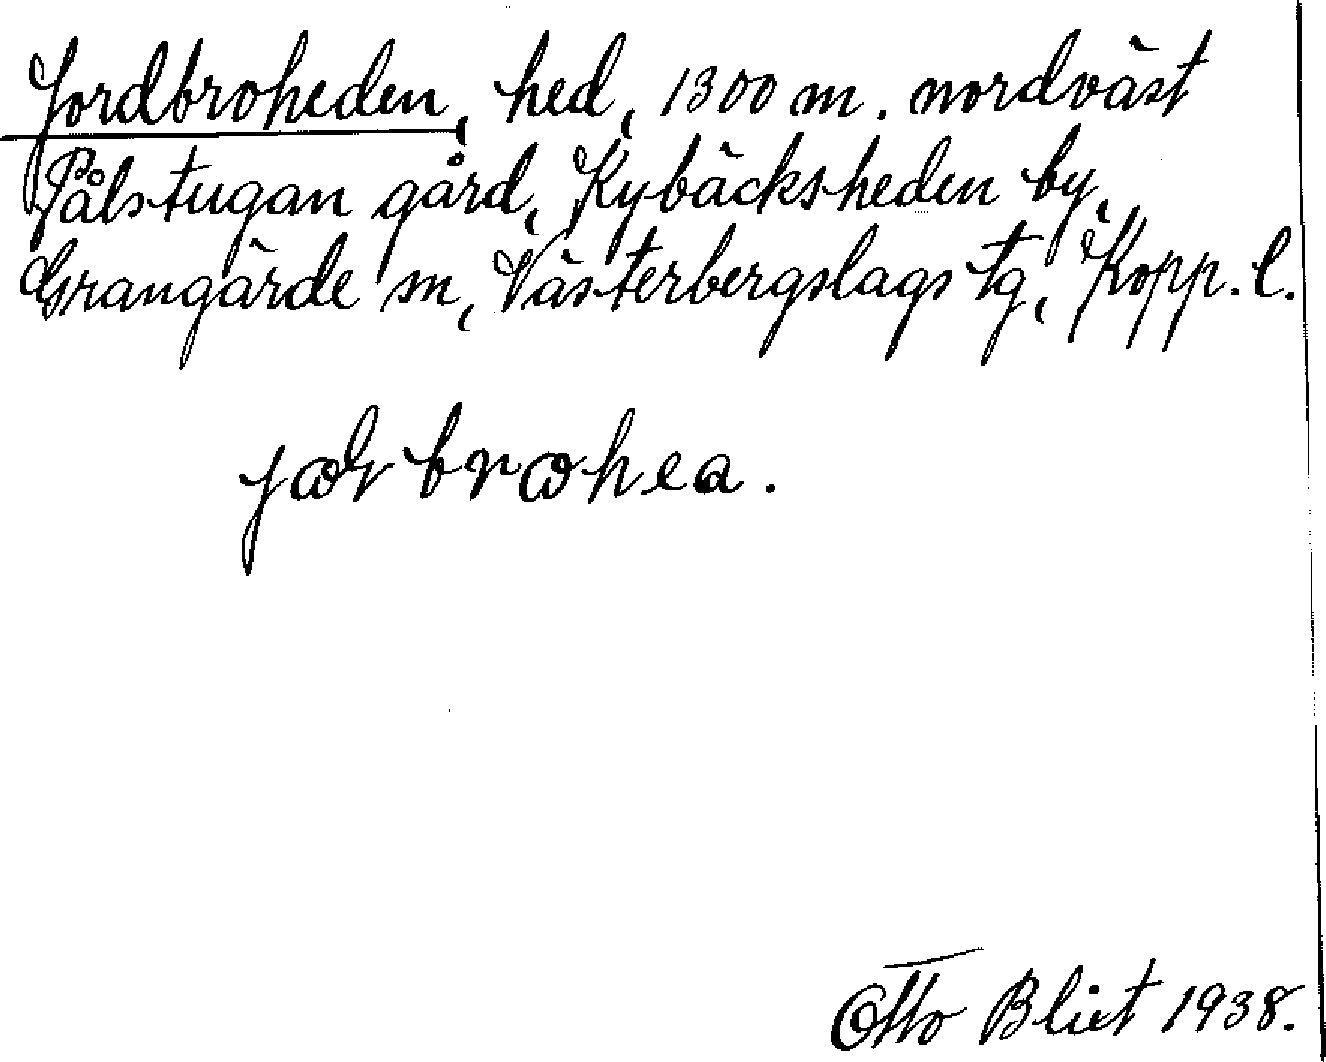 Jordbroheden, hed, 1300 m. nordväst
Pålstugan gård, Kybäcksheden by,
Grangärde sn, Västerbergslags tg, Kopp. l.
Otto Blixt 1938.